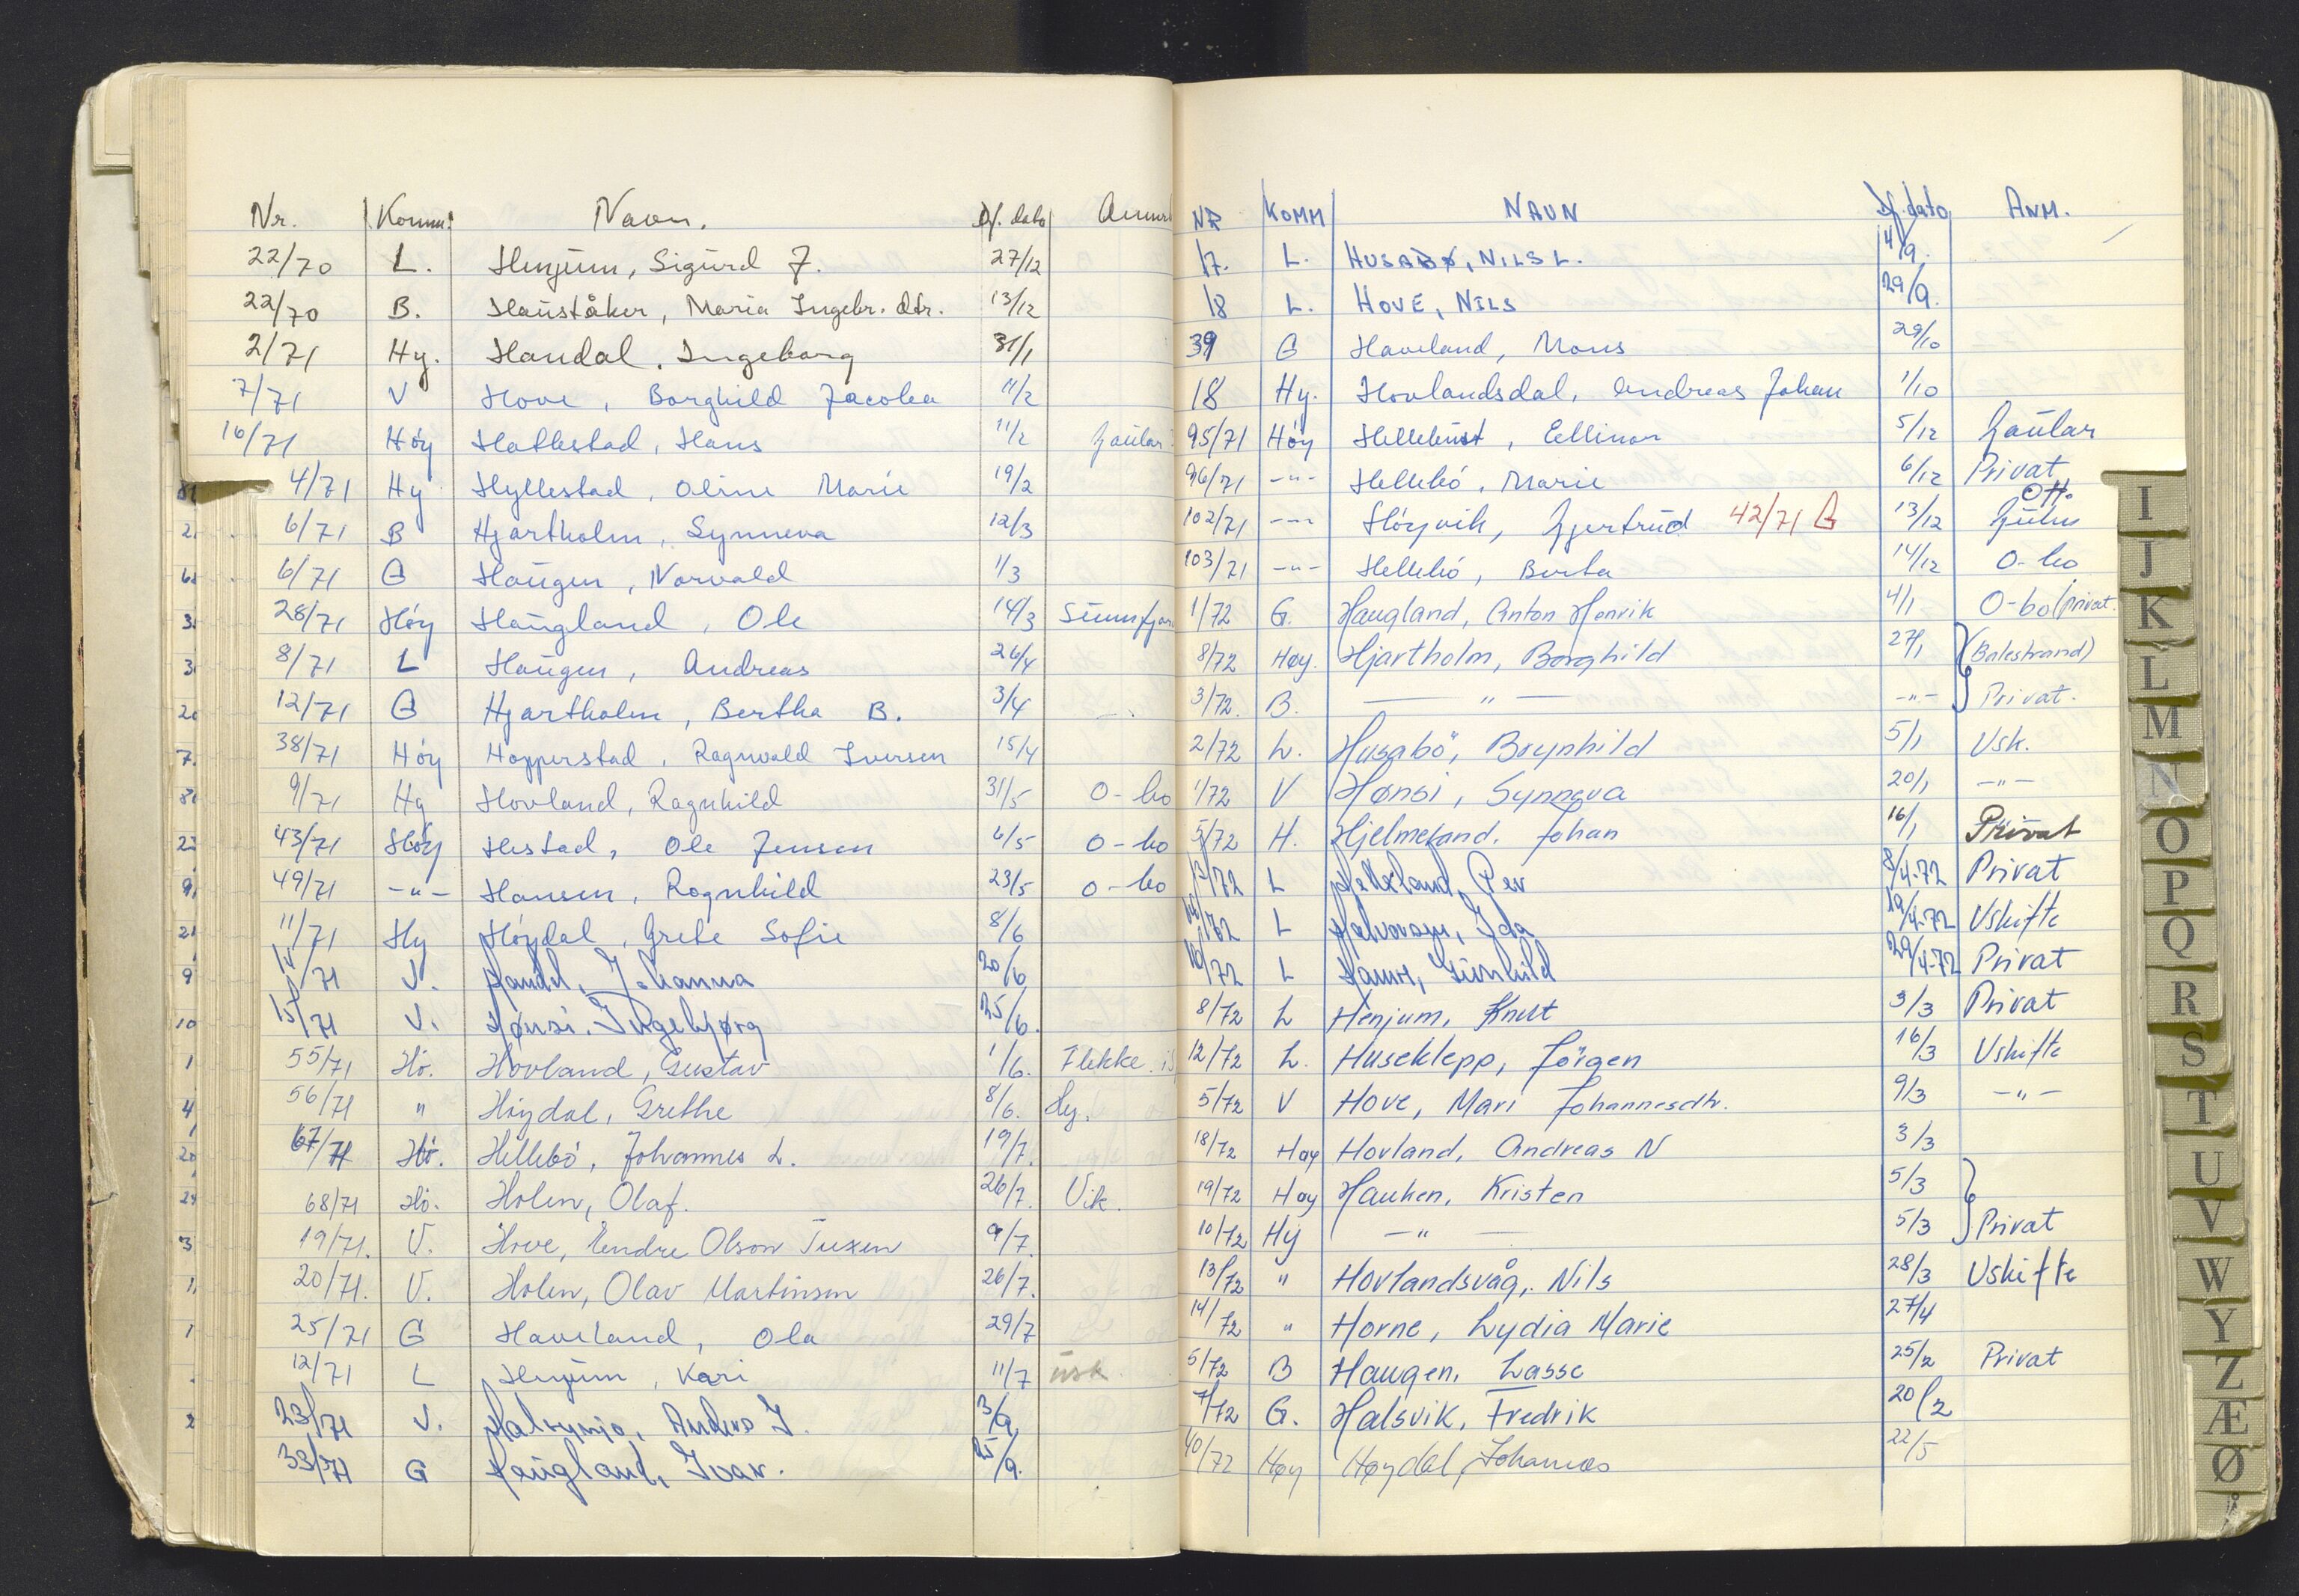 Nr. Komm. Navn. Df. dato
22/70 L. Henjum, Sigurd J. 27/12
22/70 B. Hauståker, Maria Ingebr. dtr. 13/12
2/71 Hy. Handal, Ingeborg 31/1
7/71 V Hove, Borghild Jacobea 11/2
16/71 Höy Hatlestad, Hans 11/2 Gaular
4/71 Hy Hyllestad, Oline Marie 19/2
6/71 B Hjartholm, Synneva 12/3
6/71 G Haugen, Norvald 1/3
28/71 Höy Haugland, Ole 14/3
8/71 L Haugen, Andreas 26/4
12/71 G Hjartholm, Bertha B. 3/4
38/71 Höy Hopperstad, Ragnvald Iversen 15/4
9/71 Hy Hovland, Ragnhild 31/5 O-bo
43/71 Höy Hestad, Ole Jensen 6/5 O-bo
49/71 -"- Hansen, Ragnhild 23/5 O-bo
11/71 Hy Höydal, Grete Sofie 8/6
/71 V. Handal, Johanna 20/6
15/71 V. Hønsi, Ingebjørg 25/6.
55/71 Hö. Hovland, Gustav 1/6. Flekke
56/71 " Höydal, Grethe 8/6. Hy.
67/71 Hö. Hellebö, Johannes L. 19/7.
68/71 Hö. Holen, Olaf. 26/7. Vik.
19/71. V. Hove, Endre Olson Tuxen 9/7.
20/71. V. Holen, Olav Martinsen 26/7.
25/71 G Haveland, Ola 29/7
12/71 L Henjum, Kari 11/7 usk.
23/71 V. Anders J. 3/9
33/71 G Haugland, Ivar. 25/9.
NR KOMM NAVN Df. dato ANM.
17. L. HUSABØ, NILS L. 14/9.
18 L. HOVE, NILS 29/9.
39 G Haveland, Mons 29/10
18 Hy. Hovlandsdal, Andreas Johan 1/10
95/71 Höy Hellebust, Ellinor 5/12 Gaular
96/71 -"- Hellebö, Marie 6/12 Privat
102/71 -"- Höyvik, Gjertrud 42/71 G 13/12 Off. Gulen
103/71 -"- Hellebö, Berta 14/12 O-bo
1/72 G. Haugland, Anton Henrik 4/1 O-bo/privat.
8/72 Høy. Hjartholm, Borghild 27/1 (Balestrand)
3/72. B. — " — -"- Privat.
2/72 L. Husabö, Brynhild 5/1 Usk.
1/72 V Hønsi, Synneva 20/1 -"-
5/72 H. Hjelmeland. Johan 16/1 Privat
/72 L Per 8/4-72 Privat
/72 L Halvorsen, Ida 19/4-72 Uskifte
16/72 L Gunhild 29/4-72 Privat
8/72 L Henjum, Knut 3/3 Privat
12/72 L. Huseklepp, Jörgen 16/3 Uskifte
5/72 V Hove, Mari Johannesdtr. 9/3 -"-
18/72 Høy Hovland, Andreas N 3/3
19/72 Høy Hauken, Kristen 5/3
10/72 Hy -"- 5/3 Privat
13/72 " Hovlandsvåg, Nils 28/3 Uskifte
14/72 " Horne, Lydia Marie 27/4
5/72 B Haugen, Lasse 25/2 Privat
7/72 G. Halsvik, Fredrik 20/2
40/72 Høy Høydal, Johannes 22/5
I
J
K
L
M
N
O
P
Q
R
S
T
U
V
W
Y
Z
Æ
Ø
Å